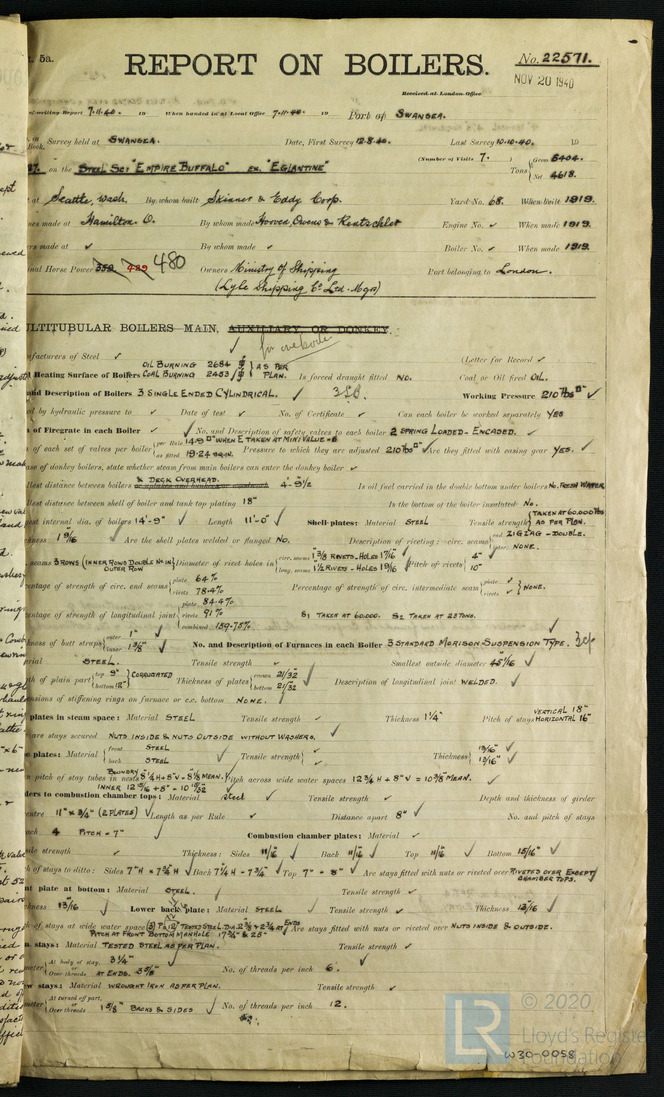 5a.
REPORT ON BOILERS.
No. 22571.
NOV 20 1940
Received at London Office
Report 7.11.40. 19 When handed in at Local Office 7.11.40. 19 Port of SWANSEA.
in Survey held at SWANSEA. Date, First Survey 12.8.40. Last Survey 10.10.40. 19
Book.
(Number of Visits 7.)
on the STEEL SCR "EMPIRE BUFFALO" EX. "EGLANTINE" Tons Gross 6404.
Net 4618.
at Seattle, Wash. By whom built Skinner & Eddy Corp. Yard No. 68. When built 1919.
nes made at Hamilton. O. By whom made Hooven, Owens & Rentschler Engine No. ✓ When made 1919.
rs made at ✓ By whom made ✓ Boiler No. ✓ When made 1919.
nal Horse Power 359 429 480 Owners Ministry of Shipping Port belonging to London.
(Lyle Shipping Co Ltd. Mgrs)
ULTITUBULAR BOILERS MAIN, AUXILIARY OR DONKEY.
✓ for one boiler
nufacturers of Steel ✓ (Letter for Record ✓
OIL BURNING 2684 AS PER
Heating Surface of Boilers COAL BURNING 2453 PLAN. Is forced draught fitted NO. Coal or Oil fired OIL.
nd Description of Boilers 3 SINGLE ENDED CYLINDRICAL. ✓ 3SB Working Pressure 210 lbs □" ✓
ed by hydraulic pressure to ✓ Date of test ✓ No. of Certificate ✓ Can each boiler be worked separately YES
of Firegrate in each Boiler ✓ No. and Description of safety valves to each boiler 2 SPRING LOADED - ENCASED. ✓
of each set of valves per boiler per Rule WHEN E TAKEN AT MIN: VALUE
as fitted 19.24 Pressure to which they are adjusted 210 lbs □" ✓ Are they fitted with easing gear YES. ✓
ase of donkey boilers, state whether steam from main boilers can enter the donkey boiler ✓
& DECK OVERHEAD.
llest distance between boilers 4'-9½ Is oil fuel carried in the double bottom under boilers NO. FRESH WATER
llest distance between shell of boiler and tank top plating 18" Is the bottom of the boiler insulated NO.
est internal dia. of boilers 14'-9" ✓ Length 11'-0" ✓ Shell plates: Material STEEL Tensile strength TAKEN AT 60.000 lbs
AS PER PLAN.
kness 1 9/16 ✓ Are the shell plates welded or flanged NO. Description of riveting: circ. seams end ZIGZAG - DOUBLE.
inter NONE.
seams 3 ROWS (INNER ROWS DOUBLE No IN OUTER ROW Diameter of rivet holes in circ. seams 1 3/8 RIVETS - HOLES 1 7/16 ✓
long. seams 1½ RIVETS - HOLES 1 9/16 Pitch of rivets 4" ✓
10"
entage of strength of circ. end seams plate 64%
rivets 78.4% Percentage of strength of circ. intermediate seam plate ✓
rivets ✓ NONE.
entage of strength of longitudinal joint plate 84.4%
rivets 91%
combined S1 TAKEN AT 60.000. S2 TAKEN AT 23 TONS.
kness of butt straps outer 1" ✓
inner 1 3/8" No. and Description of Furnaces in each Boiler 3 STANDARD MORISON - SUSPENSION TYPE. 3cf
erial STEEL. Tensile strength ✓ Smallest outside diameter 45 1/16 ✓
th of plain part top 9"
bottom 12" CORRUGATED Thickness of plates crown 21/32
bottom 21/32 ✓ Description of longitudinal joint WELDED. ✓
ensions of stiffening rings on furnace or c.c. bottom NONE. ✓
plates in steam space: Material STEEL Tensile strength ✓ Thickness 1¼" Pitch of stays VERTICAL 18"
HORIZONTAL 16"
are stays secured NUTS INSIDE & NUTS OUTSIDE WITHOUT WASHERS. ✓
e plates: Material front STEEL
back STEEL Tensile strength ✓ Thickness 13/16" ✓
13/16" ✓
pitch of stay tubes in nests BOUNDRY 8¼ H + 8" V = 8⅛ MEAN. Pitch across wide water spaces 12¾ H + 8" V = 10⅜ MEAN. ✓
INNER
ders to combustion chamber tops: Material steel ✓ Tensile strength ✓ Depth and thickness of girder
entre 11" × ¾" (2 PLATES) ✓ Length as per Rule ✓ Distance apart 8" ✓ No. and pitch of stays
ach 4 PITCH = 7" Combustion chamber plates: Material ✓
ile strength ✓ Thickness: Sides 11/16 ✓ Back 11/16 ✓ Top 11/16 ✓ Bottom 15/16" ✓
h of stays to ditto: Sides 7" H × 7¾ H ✓ Back 7¼ H - 7¾" ✓ Top 7" - 8" ✓ Are stays fitted with nuts or riveted over RIVETED OVER EXCEPT
CHAMBER TOPS.
nt plate at bottom: Material STEEL. ✓ Tensile strength ✓
kness 13/16 ✓ Lower back plate: Material STEEL ✓ Tensile strength ✓ Thickness 13/16 ✓
h of stays at wide water space TESTED STEEL. DIA ENDS Are stays fitted with nuts or riveted over NUTS INSIDE & OUTSIDE.
PITCH AT FRONT BOTTOM MANHOLE 17¾" & 25"
n stays: Material TESTED STEEL AS PER PLAN. Tensile strength ✓
meter At body of stay, 3¼" ✓
Over threads AT ENDS. No. of threads per inch 6. ✓
w stays: Material WROUGHT IRON AS PER PLAN. Tensile strength ✓
meter At turned off part,
Over threads 1 5/8" BACKS & SIDES ✓ No. of threads per inch 12. ✓
LR © 2020
Lloyd's Register
Foundation
W30-0058